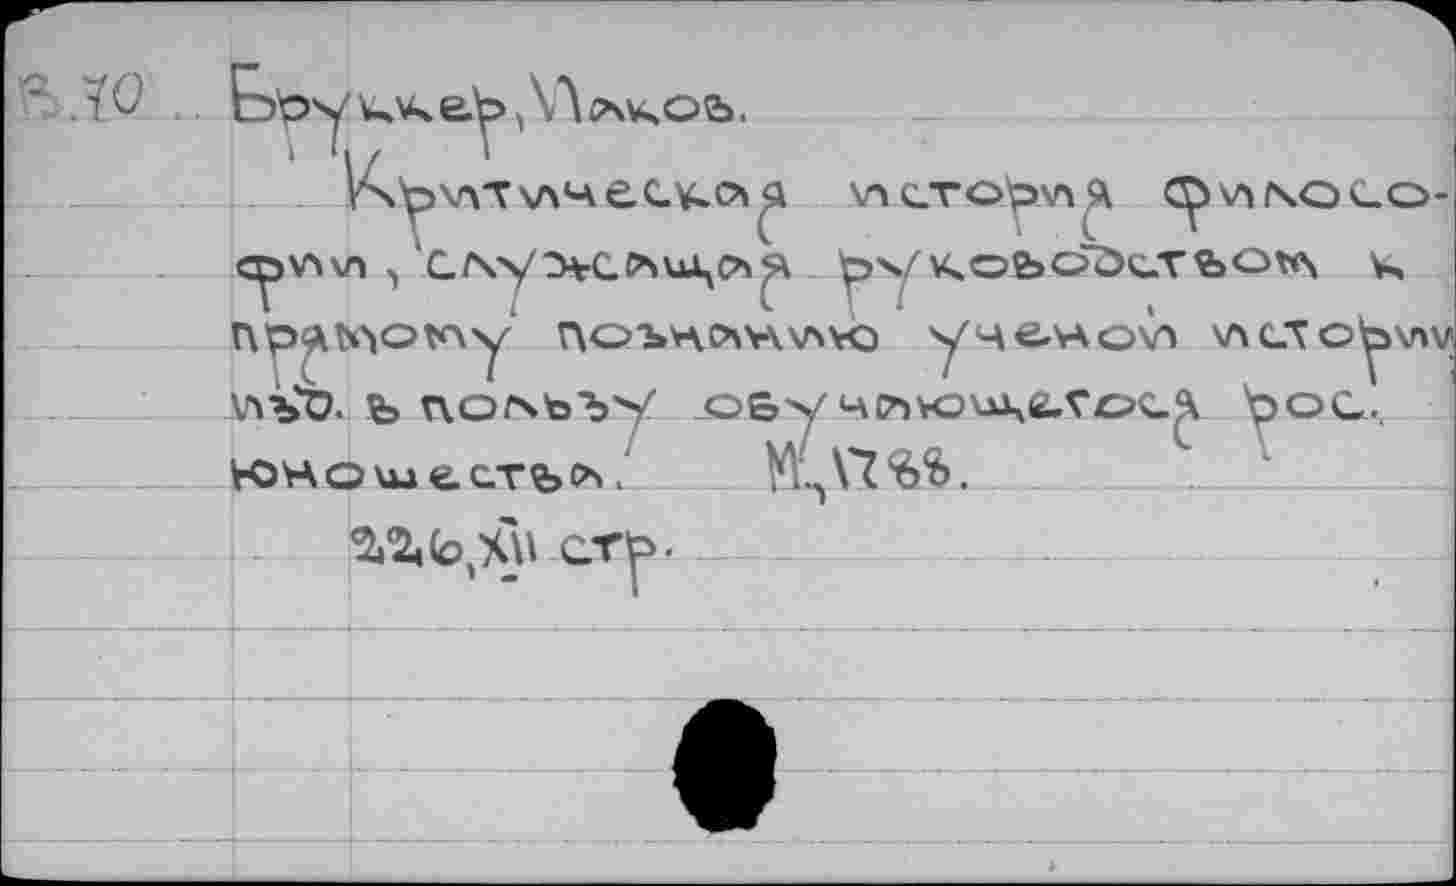 Бруккер, Иаков.
Критическая исторія филосо-
фіи, служащая руководством к
прямому познанию ученой истории
изд. в пользу обучающегося рос.
юношества. М., 1788.
226, XII стр.